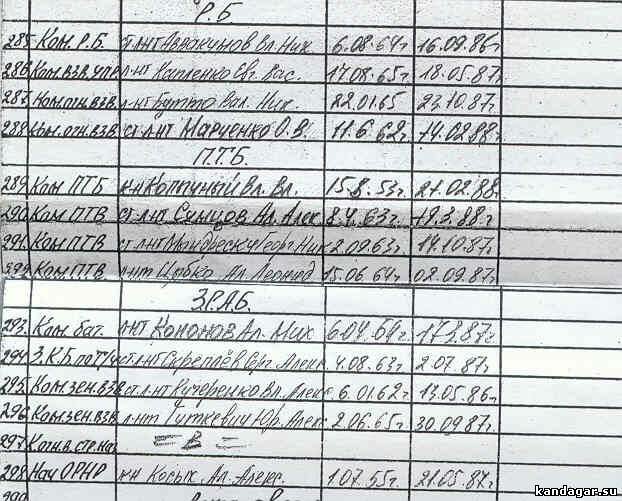 Р.Б
285 Ком. Р.Б. ст.лнт Аввакумов Вл. Ник. 6.08.64г. 16.09.86г
286 Ком.взв.упр л-нт Евг. Вас. 17.08.65г. 18.05.87г.
287 Ком.огн.взв. л-нт Бутто Вал. Ник. 22.01.65 23.10.87г.
288 Ком.огн.взв. ст.лнт Марченко О.В. 11.6.62г. 14.02.88г.
П.Т.Б.
289 Ком ПТБ к-н Вл. Вл. 15.8.53г. 21.02.88г.
290 Ком ПТВ ст.лнт Сунцов Ал. Алек 8.4.63г. 19.3.88г.
291 Ком ПТВ ст.лнт Георг. Ник 2.09.63г. 14.10.87г.
292 Ком.ПТВ л-нт Цыбко Ал. Леонид 15.06.64г. 02.09.87г.
З.Р.А.Б.
293 Ком. бат. л-нт Кононов Ал. Мих 6.04.59г. 17.3.87г.
294 З.К.Б по П/Ч ст.лнт Серг. Алекс 4.08.63г. 2.07.87г.
295 Ком.зен.взв ст.лнт Кучеренко Вл. Алекс 6.01.62г. 13.05.86г.
296 Ком.зен.взв. л-нт Гуткевич Юр. Алек 2.06.65г. 30.09.87г.
297 = В =
298 Нач ОРНР к-н Косых Ал. Алекс. 1.07.55г. 21.05.87г.
299
kandagar.su